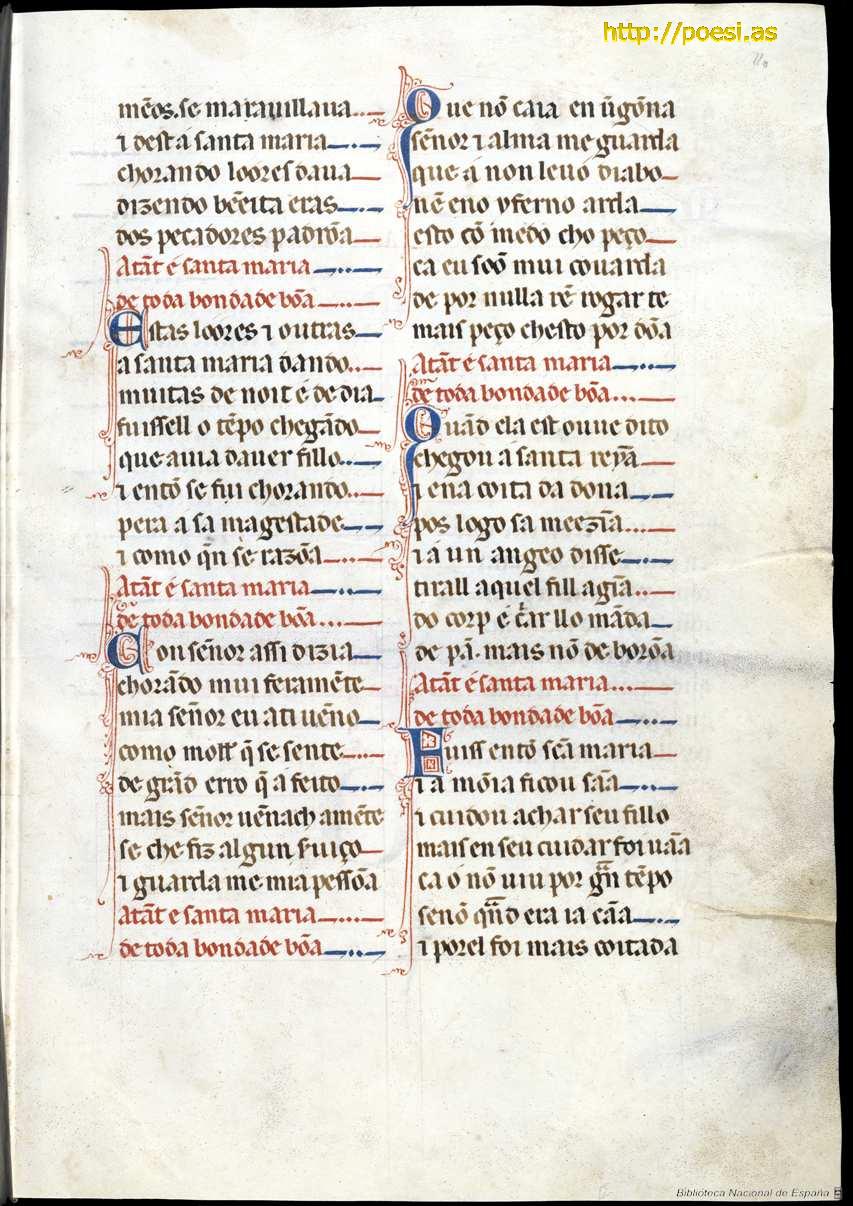 http://poesi.as
mẽos. se marauillaua
⁊ dest á santa maria
chorando loores daua
dizendo bẽeita eras
dos pecadores padrõa
Atãt é santa maria
de toda bondade bõa
Estas loores ⁊ outras
a santa maria dando
muitas de noit é de dia
fuissell o tẽpo chegãdo
que auia dauer fillo
⁊ entõ se fui chorando
pera á sa magestade
⁊ como q̃n se razõa
Atãt é santa maria
de toda bondade bõa
Con señor assi dizia
chorãdo mui feramẽte
mia señor eu ati uẽno
como moll̃ q̃ se sente
de grãd erro q̃ a feito
mais señor uẽnach amẽte
se che fiz algun s̃uiço
⁊ guarda me mia pessõa
Atãt e santa maria
de toda bondade bõa
Que nõ caia en ũgõna
sẽnor ⁊ alma me guarda
que á non leuo diabo
nẽ eno yferno arda
esto cõ medo cho peço
ca eu soõ mui couarda
de por nulla rẽ rogar te
mais peço chesto por dõa
Atãt é santa maria
de toda bondade bõa
Quãd ela est ouue dito
chegou á santa reyã
⁊ ena coita da dona
pos logo sa meezĩa
⁊ á un angeo disse
tirall aquel fill agĩa
do corp é c̃ar llo mãda
de pã. mais nõ de borõa
Atãt é santa maria
de toda bondade bõa
Fuiss entõ sc̃a maria
⁊ a mõia ficou sãa
⁊ cuidou achar seu fillo
mais en seu cuidar foi uãa
ca ó nõ uiu por gñ tẽpo
senõ qñdo era ia cãa
⁊ porel foi mais coitada
Biblioteca Nacional de España